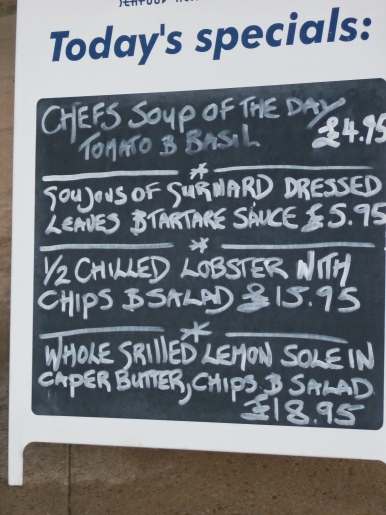 Today's specials:
CHEFS SOUP OF THE DAY
TOMATO & BASIL £4.95
GOUJONS OF GURNARD DRESSED
LEAVES & TARTARE SAUCE £5.95
1/2 CHILLED LOBSTER WITH
CHIPS & SALAD £15.95
WHOLE GRILLED LEMON SOLE IN
CAPER BUTTER, CHIPS & SALAD
£18.95